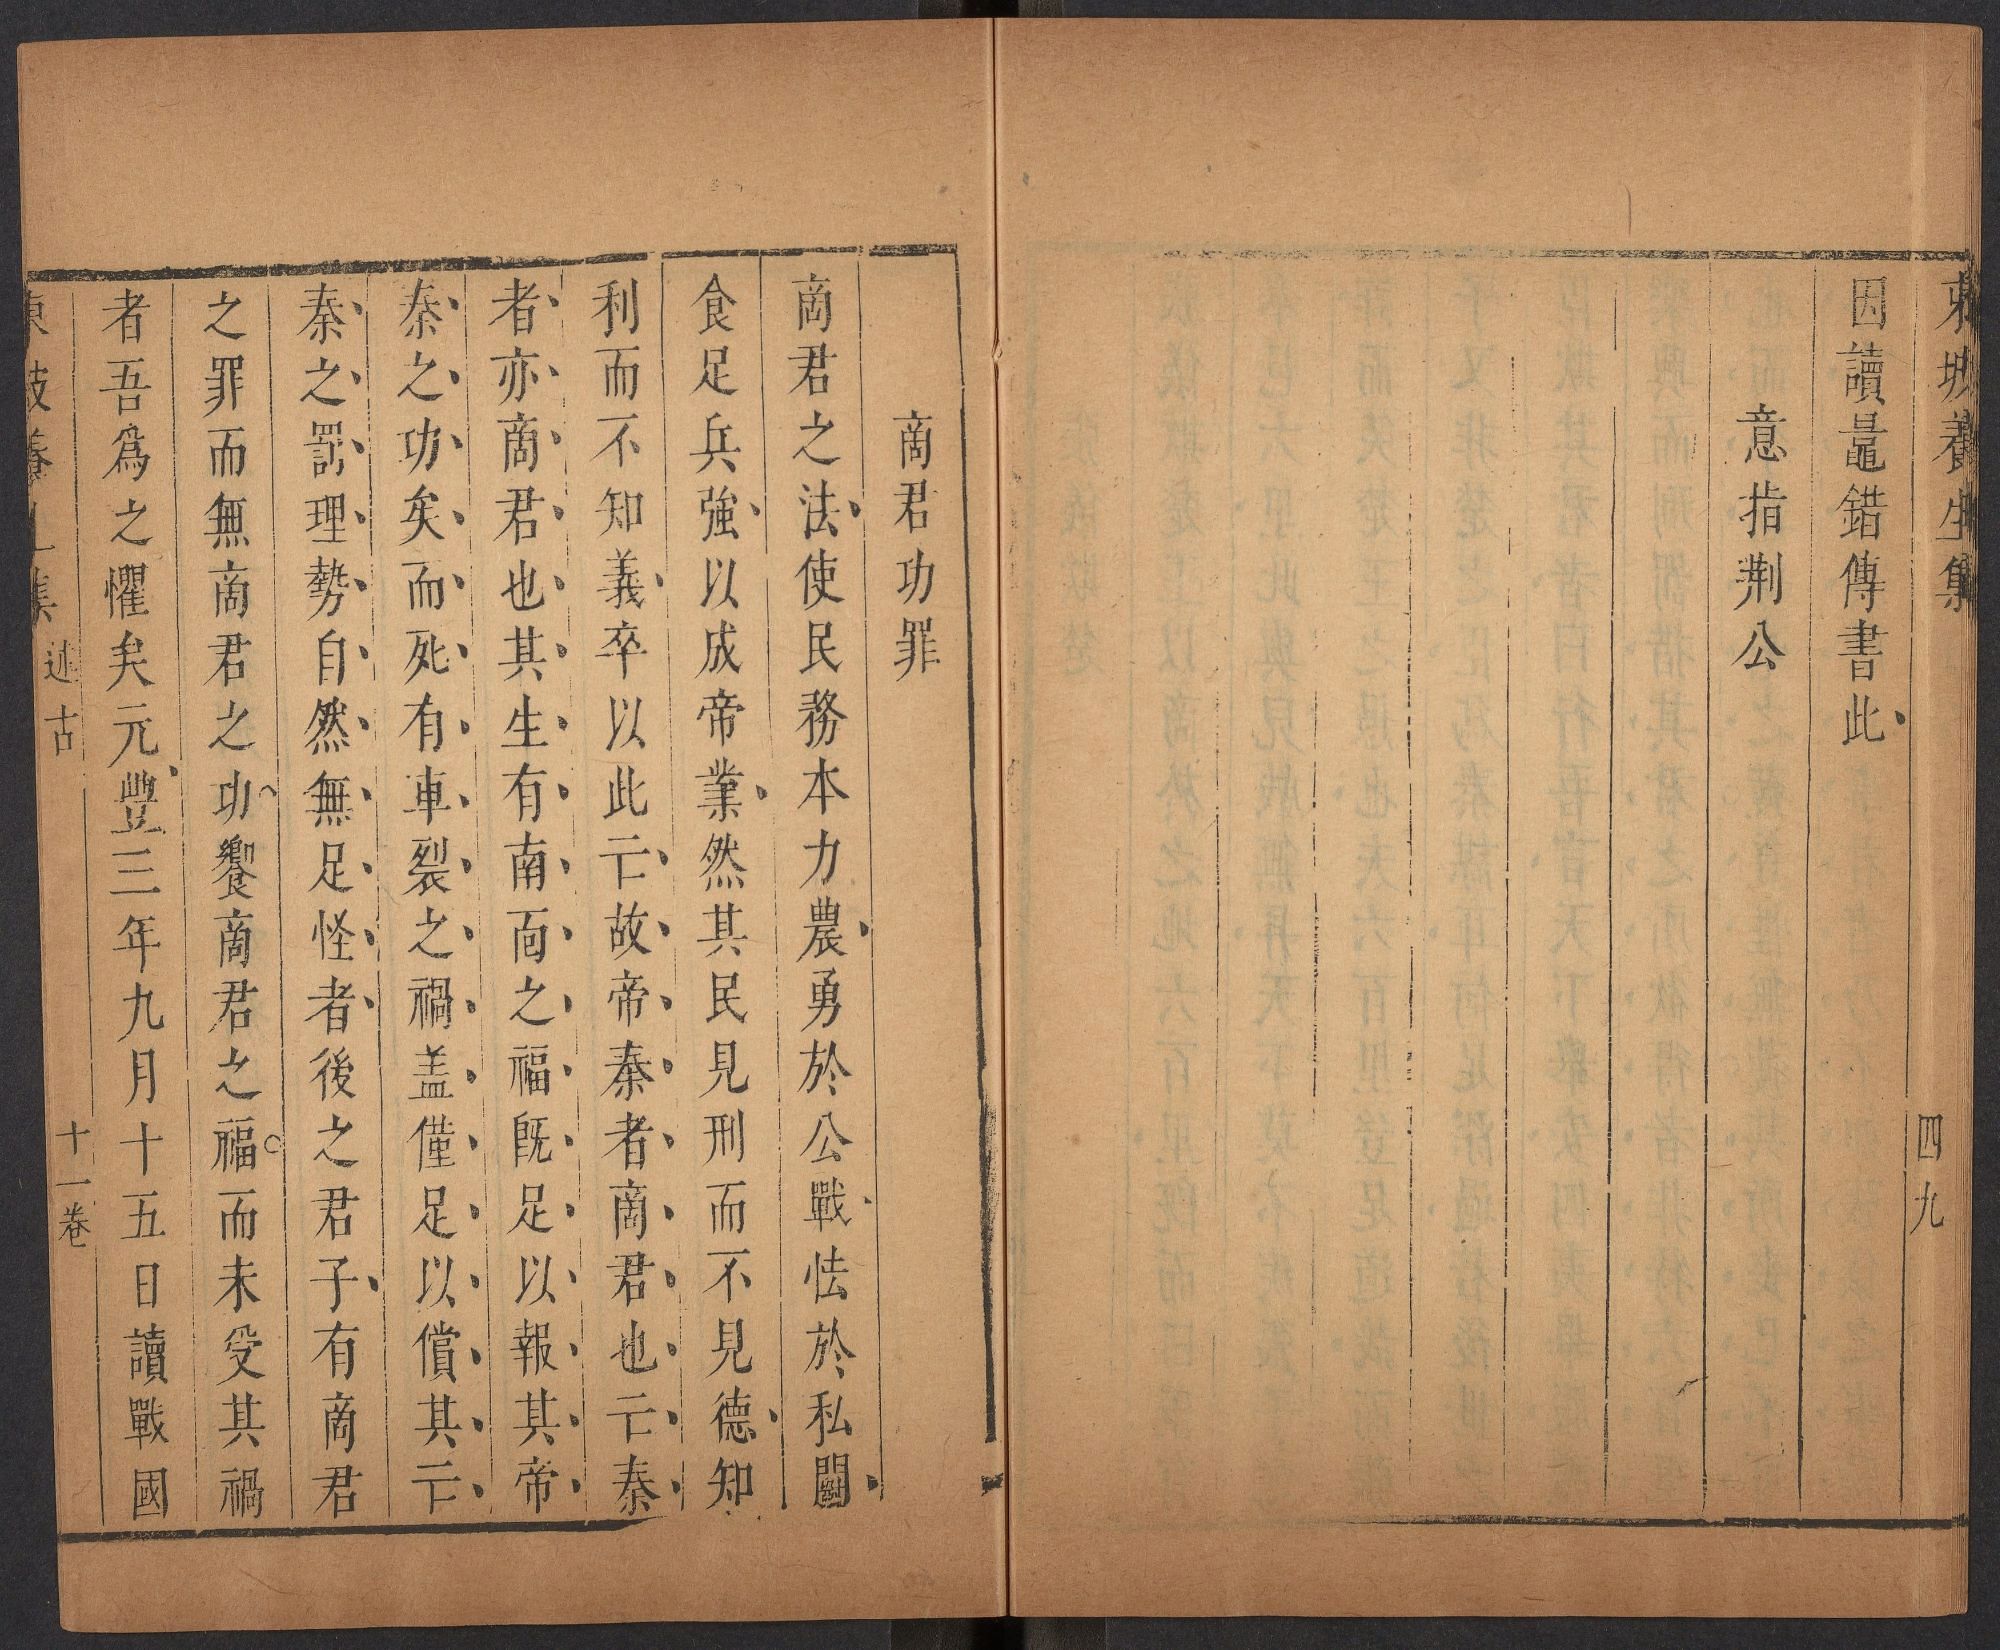 東坡養生集
四九
因讀鼂錯傳書此
意指荆公
商君功罪
商君之法使民務本力農勇於公戰怯於私鬭
食足兵強以成帝業然其民見刑而不見德知
利而不知義卒以此亡故帝秦者商君也亡秦
者亦商君也其生有南面之福旣足以報其帝
秦之功矣而死有車裂之禍盖僅足以償其亡
秦之罰理勢自然無足怪者後之君子有商君
之罪而無商君之功饗商君之福而未受其禍
者吾爲之懼矣元豐三年九月十五日讀戰國
東坡養生集
述古
十一卷